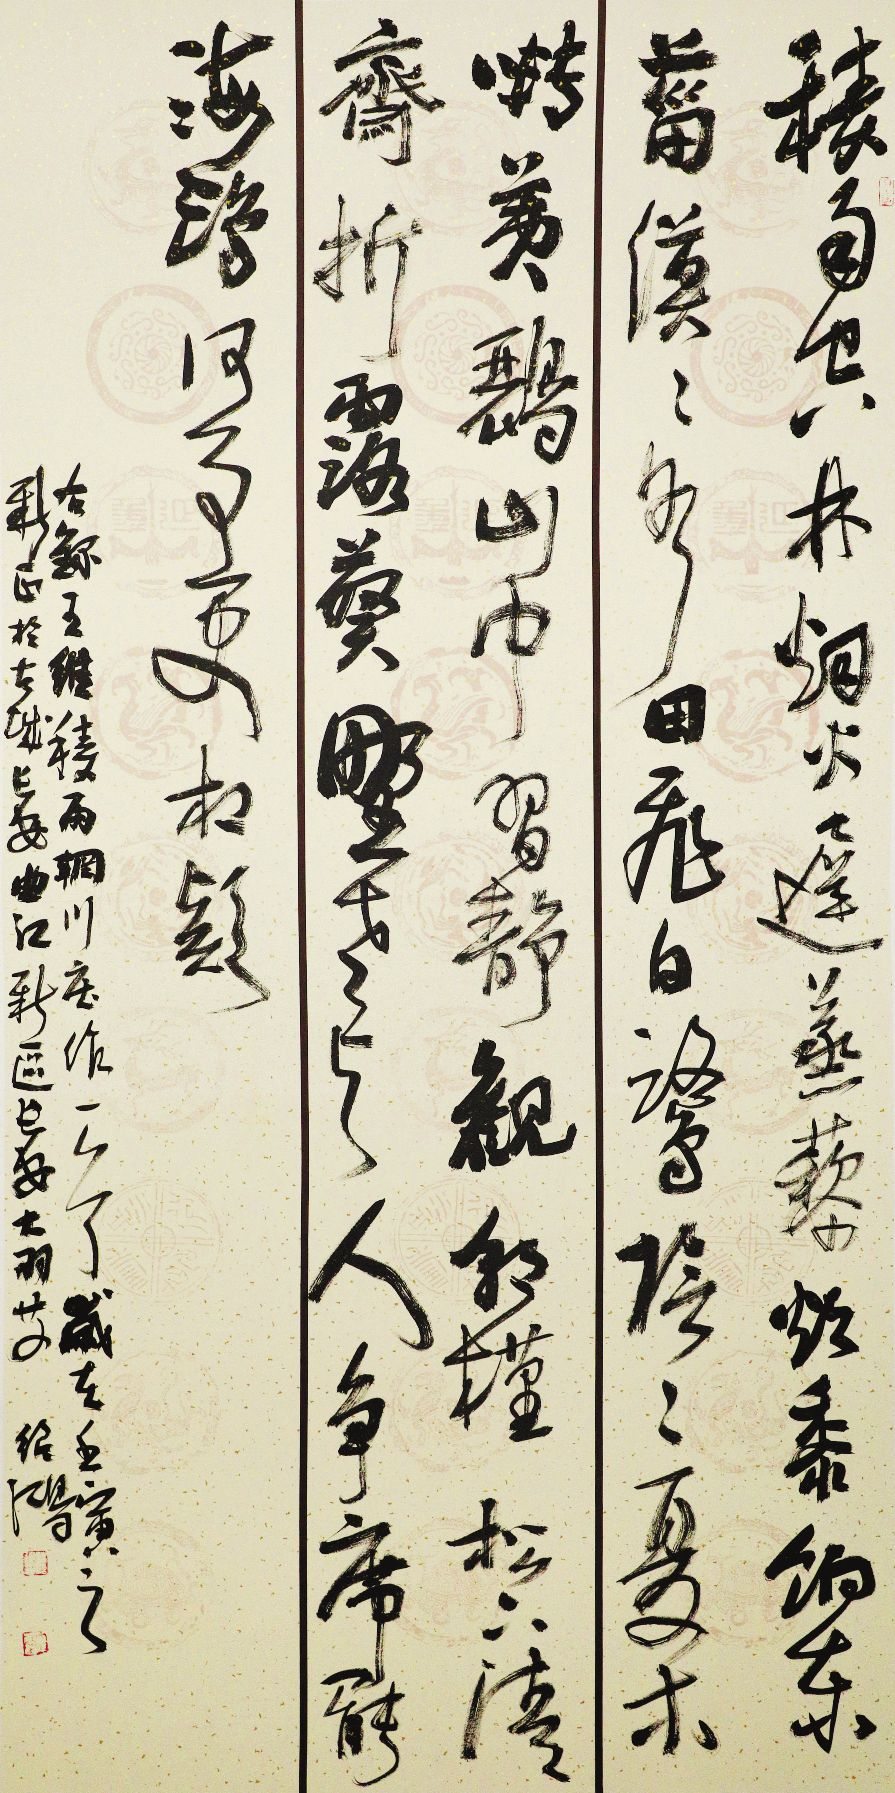 積雨空林烟火遲蒸藜炊黍餉東
菑漠々水田飛白鷺陰々夏木
囀黃鸝山中習靜觀朝槿松下清
齋折露葵野老與人爭席罷
海鷗何事更相疑
右錄王維積雨輞川莊作一歲在壬寅之
新正於古城長安曲江新區長安